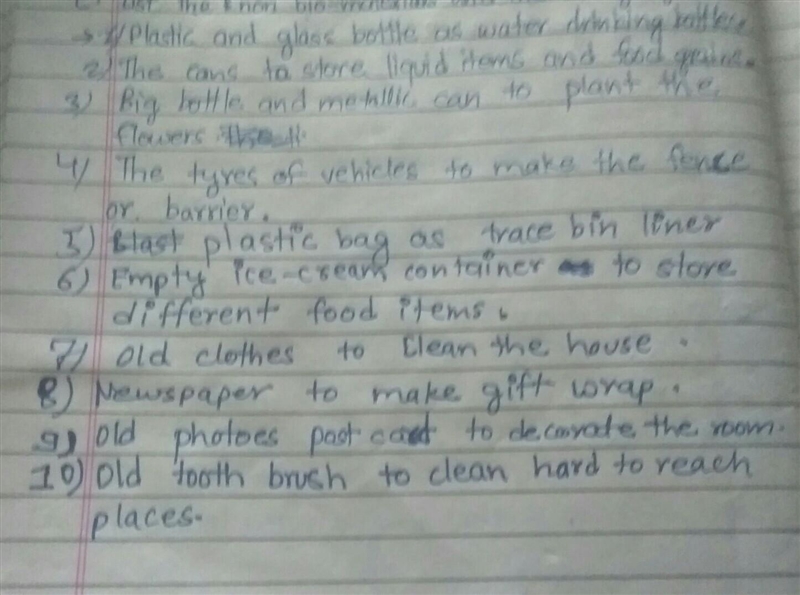 List the know bio
→ 1) Plastic and glass bottle as water drinking bottle.
2) The cans to store liquid items and food grains.
3) Big bottle and metallic can to plant the
flowers
4) The tyres of vehicles to make the fence
or barrier.
5) plastic bag as trace bin liner
6) Empty ice-cream container to store
different food items.
7) Old clothes to clean the house.
8) Newspaper to make gift wrap.
9) Old photoes post card to decorate the room.
10) Old tooth brush to clean hard to reach
places.